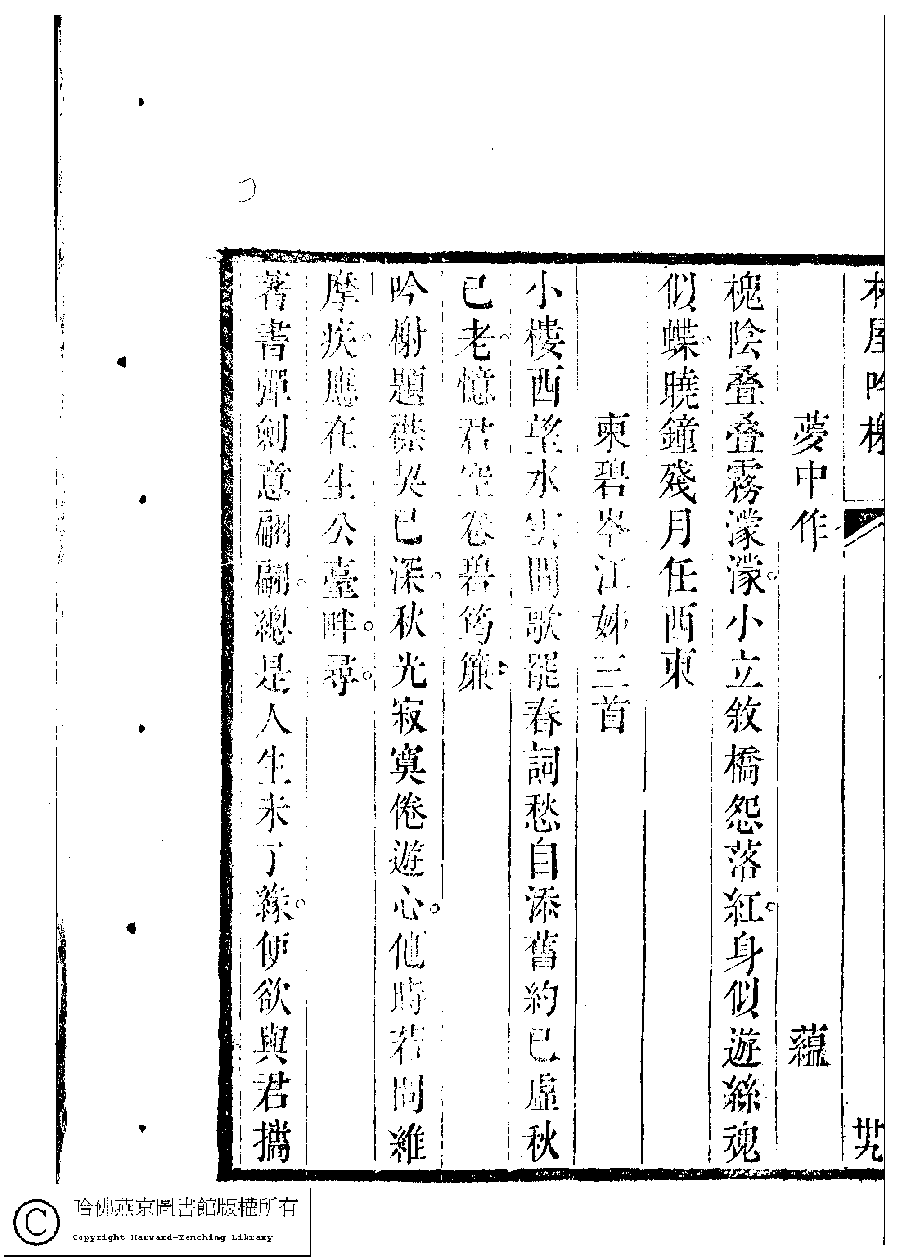 林屋吟榭
卅九
夢中作
蘊
槐陰叠叠霧濛濛小立斂橋怨落紅身似遊絲魂
似蝶曉鐘殘月任西東
柬碧岑江姊三首
小樓西望水雲間歌罷春詞愁自添舊約已虛秋
已老憶君空卷碧筠簾
吟榭題襟契已深秋光寂寞倦遊心他時若問維
摩疾應在生公臺畔尋
著書彈劍意翩翩總是人生未了緣便欲與君攜
哈佛燕京圖書館版權所有
Copyright Harvard-Yenching Library